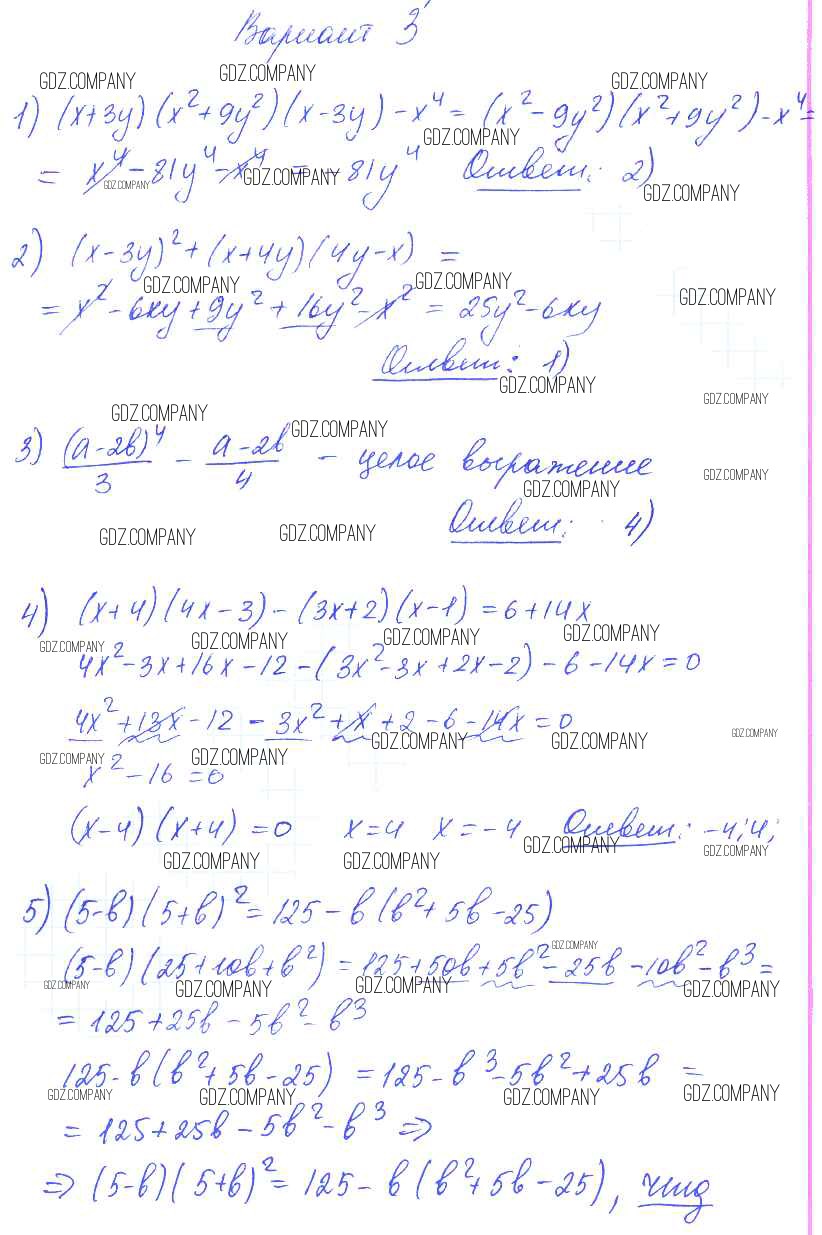 Вариант 3
GDZ.COMPANY GDZ.COMPANY GDZ.COMPANY
1) (x+3y)(x²+9y²)(x-3y)-x⁴= (x²-9y²)(x²+9y²)-x⁴=
GDZ.COMPANY
= x⁴-81y⁴-x⁴ = -81y⁴ Ответ: 2)
GDZ.COMPANY GDZ.COMPANY GDZ.COMPANY
2) (x-3y)²+(x+4y)(4y-x) =
GDZ.COMPANY GDZ.COMPANY GDZ.COMPANY
= x²-6xy+9y²+16y²-x² = 25y²-6xy
Ответ: 1)
GDZ.COMPANY GDZ.COMPANY
GDZ.COMPANY GDZ.COMPANY
3) (a-2b)⁴/3 - a-2b/4 - целое выражение
GDZ.COMPANY GDZ.COMPANY
Ответ: 4)
GDZ.COMPANY GDZ.COMPANY
4) (x+4)(4x-3)-(3x+2)(x-1)=6+14x
GDZ.COMPANY GDZ.COMPANY GDZ.COMPANY GDZ.COMPANY
4x²-3x+16x-12-(3x²-3x+2x-2)-6-14x=0
4x²+13x-12-3x²+x+2-6-14x=0
GDZ.COMPANY GDZ.COMPANY GDZ.COMPANY
GDZ.COMPANY GDZ.COMPANY
x²-16=0
(x-4)(x+4)=0 x=4 x=-4 Ответ: -4;4;
GDZ.COMPANY GDZ.COMPANY GDZ.COMPANY GDZ.COMPANY
5) (5-b)(5+b)²=125-b(b²+5b-25)
GDZ.COMPANY
(5-b)(25+10b+b²)=125+50b+5b²-25b-10b²-b³=
GDZ.COMPANY GDZ.COMPANY GDZ.COMPANY GDZ.COMPANY
= 125+25b-5b²-b³
125-b(b²+5b-25) =125-b³-5b²+25b =
GDZ.COMPANY GDZ.COMPANY GDZ.COMPANY GDZ.COMPANY
= 125+25b-5b²-b³ ⇒
⇒ (5-b)(5+b)²=125-b(b²+5b-25), чтд